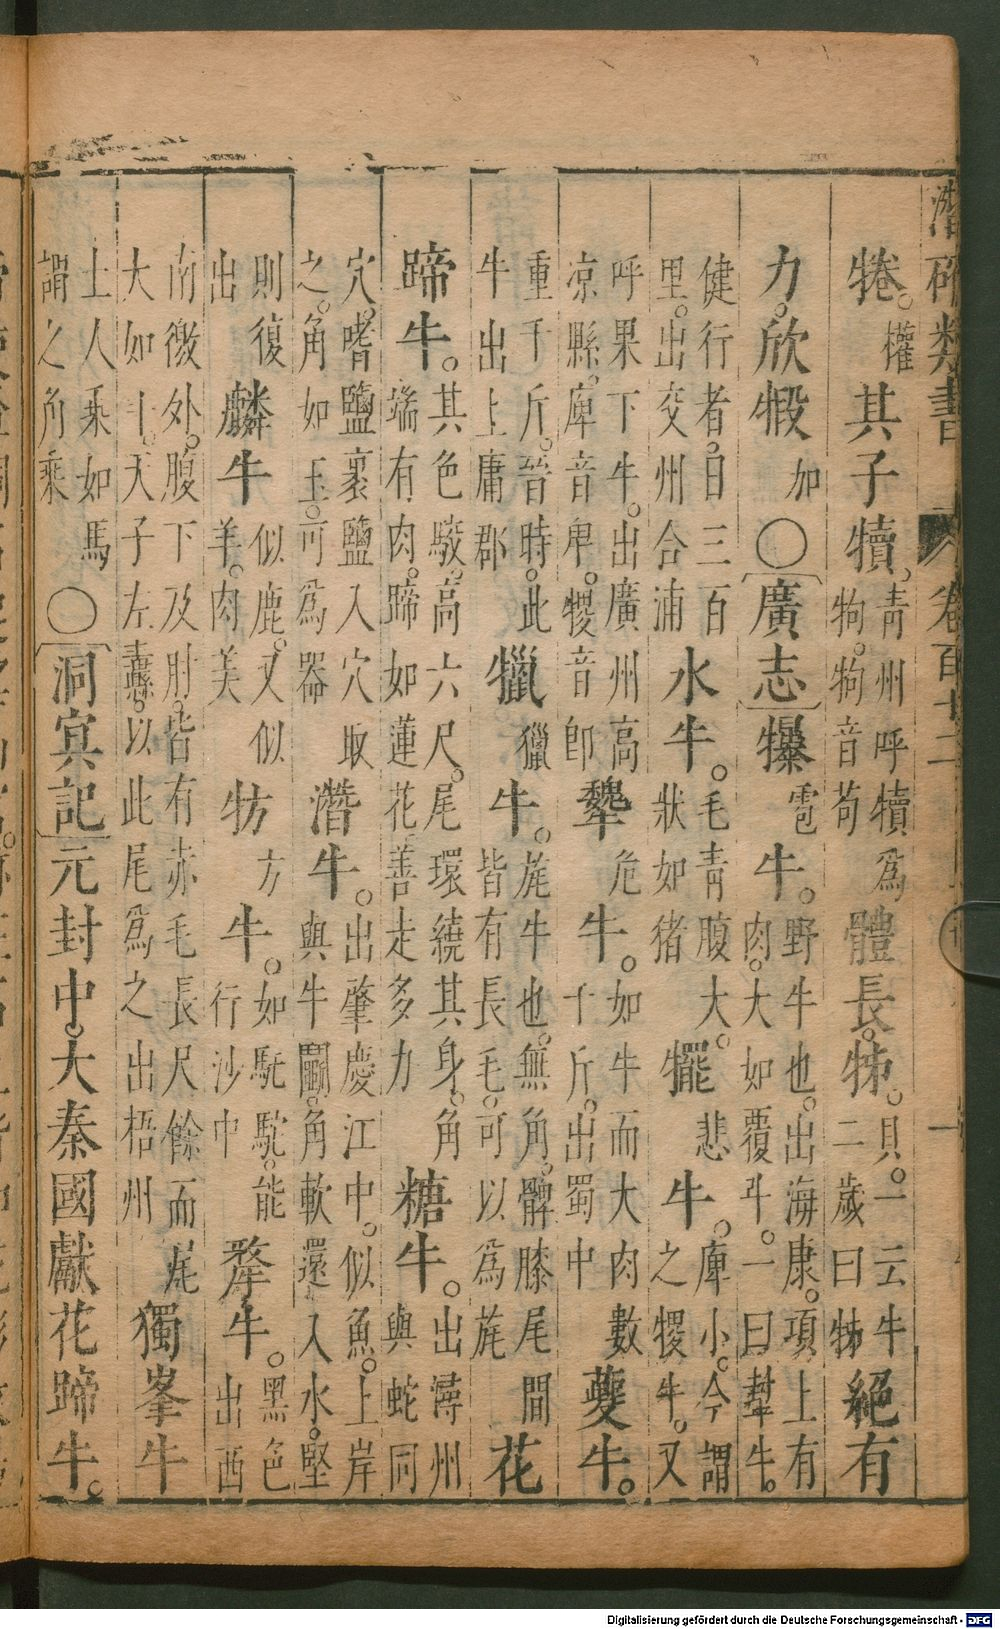 潛確類書 卷百十二
犈。權其子犢。青州呼犢為㸬。㸬音苟體長。牬。貝。一云牛二歲曰牬絕有
力。欣犌加〇廣志犦雹牛。野牛也。出海康。項上有肉。大如覆斗。一曰犎牛。
健行者。日三百里。出交州合浦水牛。毛青腹大。狀如猪犤悲牛。庳小。今謂之𤛿牛。又
呼果下牛。出廣州高涼縣。庳音卑。𤛿音即犩危牛。如牛而大肉數千斤。出蜀中夔牛。
重千斤。晉時。此牛出上庸郡犣獵牛。旄牛也。無角。髀膝尾間皆有長毛。可以為旄花
蹄牛。其色駁。高六尺。尾環繞其身。角端有肉。蹄如蓮花善走多力糖牛。出潯州與蛇同
穴。嗜鹽裹鹽入穴取之。角如玉。可為器潛牛。出肇慶江中。似魚。上岸與牛鬭。角軟還入水。堅
則復出麟牛似鹿。又似羊。肉美牥方牛。如馲駝。能行沙中犛牛。黑色出西
南徼外。腹下及肘。皆有赤毛長尺餘而尾大如斗。天子左纛。以此尾為之出梧州獨峯牛
土人乘如馬謂之角乘〇洞冥記元封中。大秦國獻花蹄牛。
Digitalisierung gefördert durch die Deutsche Forschungsgemeinschaft - DFG